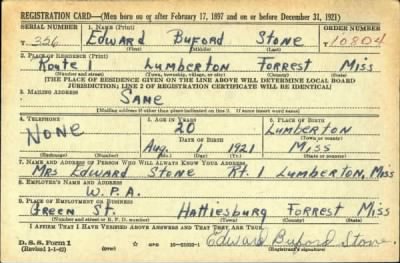 REGISTRATION CARD—(Men born on or after February 17, 1897 and on or before December 31, 1921)
SERIAL NUMBER 1. NAME (Print) ORDER NUMBER
T 356 Edward Buford Stone 10804
(First) (Middle) (Last)
2. PLACE OF RESIDENCE (Print)
Route 1 Lumberton Forrest Miss
(Number and street) (Town, township, village, or city) (County) (State)
[THE PLACE OF RESIDENCE GIVEN ON THE LINE ABOVE WILL DETERMINE LOCAL BOARD
JURISDICTION; LINE 2 OF REGISTRATION CERTIFICATE WILL BE IDENTICAL]
3. MAILING ADDRESS
Same
[Mailing address if other than place indicated on line 2. If same insert word same]
4. TELEPHONE 5. AGE IN YEARS 6. PLACE OF BIRTH
None 20 Lumberton
DATE OF BIRTH (Town or county)
Aug. 1 1921 Miss
(Exchange) (Number) (Mo.) (Day) (Yr.) (State or country)
7. NAME AND ADDRESS OF PERSON WHO WILL ALWAYS KNOW YOUR ADDRESS
Mrs Edward Stone Rt. 1 Lumberton, Miss
8. EMPLOYER'S NAME AND ADDRESS
W.P.A.
9. PLACE OF EMPLOYMENT OR BUSINESS
Green St. Hattiesburg Forrest Miss
(Number and street or R. F. D. number) (Town) (County) (State)
I AFFIRM THAT I HAVE VERIFIED ABOVE ANSWERS AND THAT THEY ARE TRUE.
D. S. S. Form 1
(Revised 1-1-42) (over) Edward Buford Stone
(Registrant's signature)